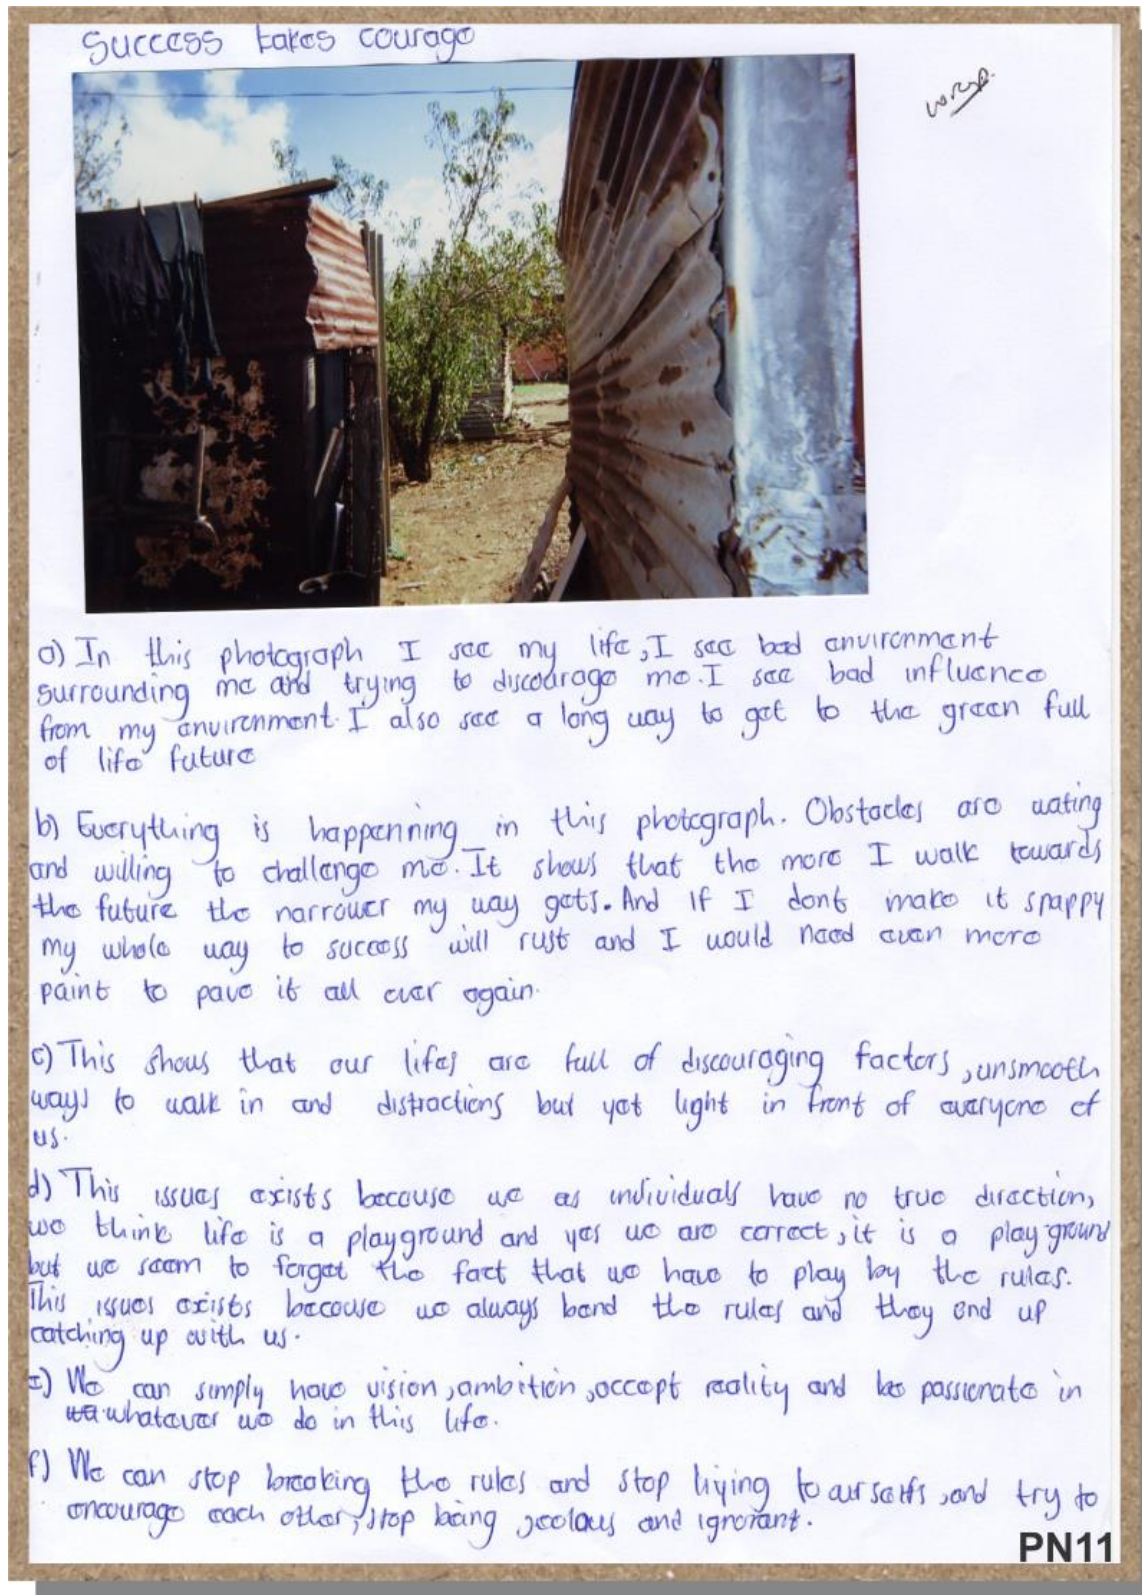 Success takes courage
a) In this photograph I see my life, I see bad environment
surrounding me and trying to discourage me. I see bad influence
from my environment. I also see a long way to get to the green full
of life future
b) Everything is happenning in this photograph. Obstacles are wating
and willing to challenge me. It shows that the more I walk towards
the future the narrower my way gets. And if I dont make it snappy
my whole way to success will rust and I would need even more
paint to pave it all over again.
c) This shows that our lifes are full of discouraging factors, unsmooth
ways to walk in and distractions but yet light in front of everyone of
us.
d) This issues exists because we as individuals have no true direction,
we think life is a playground and yes we are correct, it is a play ground
but we seem to forget the fact that we have to play by the rules.
This issues exists because we always bend the rules and they end up
catching up with us.
e) We can simply have vision, ambition, accept reality and be passionate in
whatever we do in this life.
f) We can stop breaking the rules and stop liying to ourselfs, and try to
encourage each other, stop being jealous and ignorant.
PN11